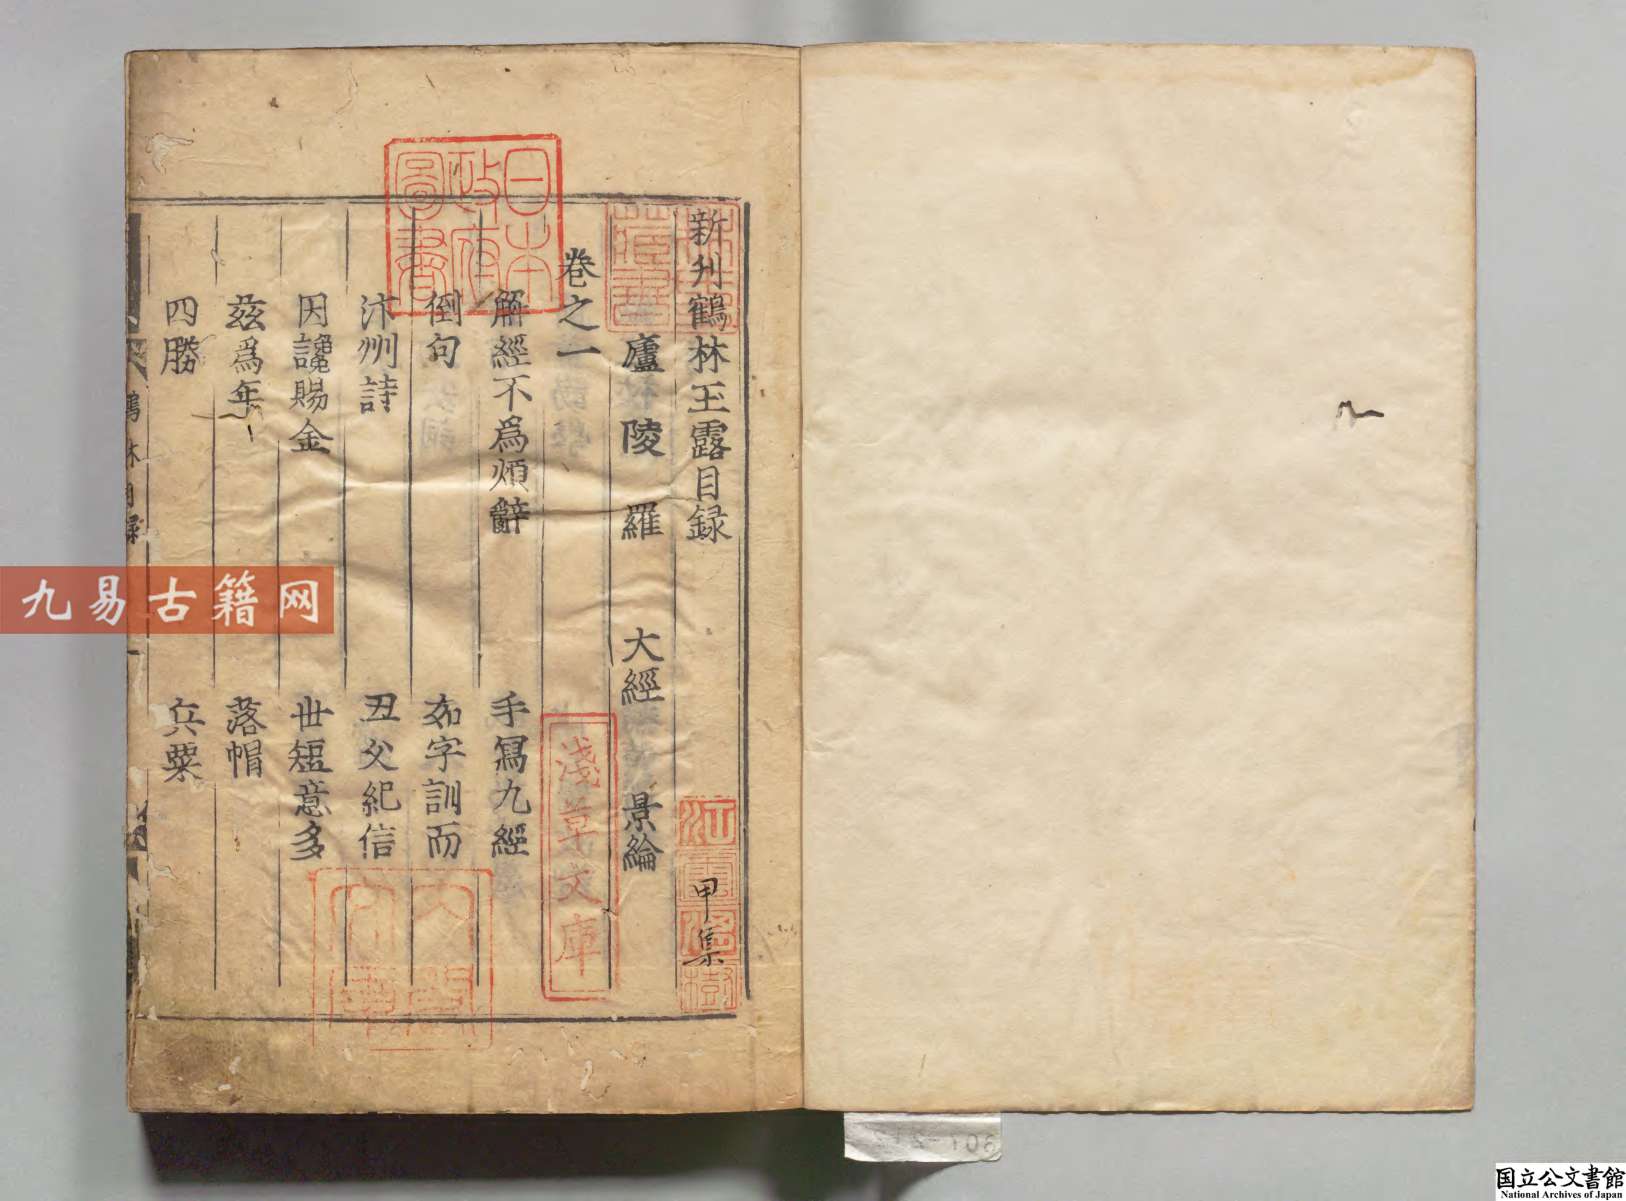 新刋鶴林玉露目録
甲集
廬陵 羅 大經 景綸
卷之一
解經不爲煩辭 手冩九經
倒句 如字訓而
汴州詩 丑父紀信
因讒賜金 世短意多
茲爲年 落帽
四勝 兵粟
鶴林目録
日本
政府
圖書
林氏
藏書
江雲渭樹
淺草文庫
九易古籍网
国立公文書館
National Archives of Japan